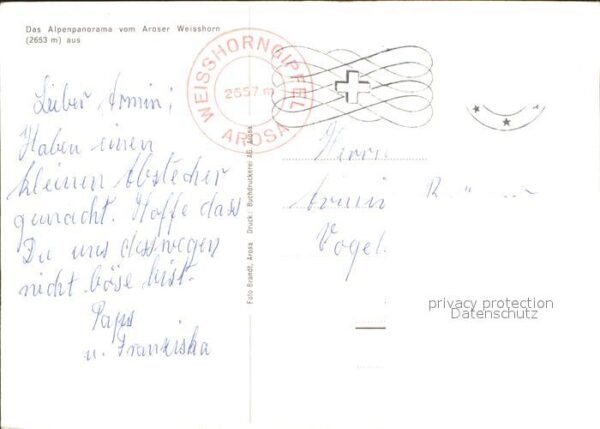 Das Alpenpanorama vom Aroser Weisshorn
(2653 m) aus
WEISSHORNGIPFEL
2657 m
AROSA
Lieber Armin!
Haben einen
kleinen Abstecher
gemacht. Hoffe dass
Du uns desswegen
nicht böse bist.
Paps
u. Franziska
Foto Brandt, Arosa Druck: Buchdruckerei AG. Arosa
Herrn
Armin
Vogel
privacy protection
Datenschutz